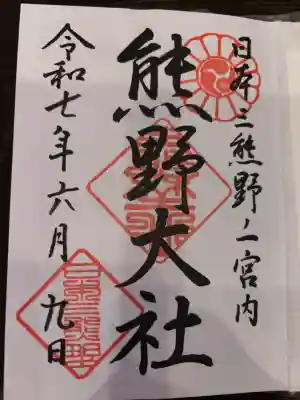 日本三熊野ノ一宮内
熊野大社
令和七年六月九日
日本三熊野